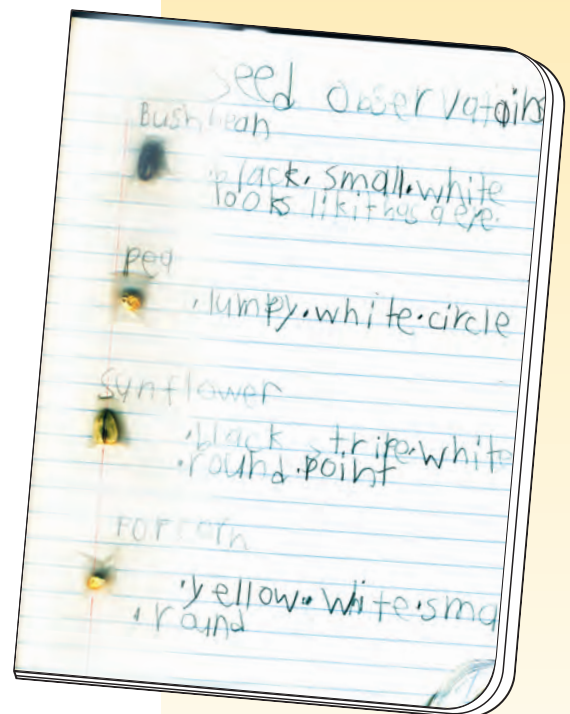 Seed Observatoins
Bush bean
· black · small · white
looks lik it has a eye.
pea
· lumpy · white · circle
Sunflower
· black stripe · white
· round · point
Popcorn
· yellow · white · sma
· round